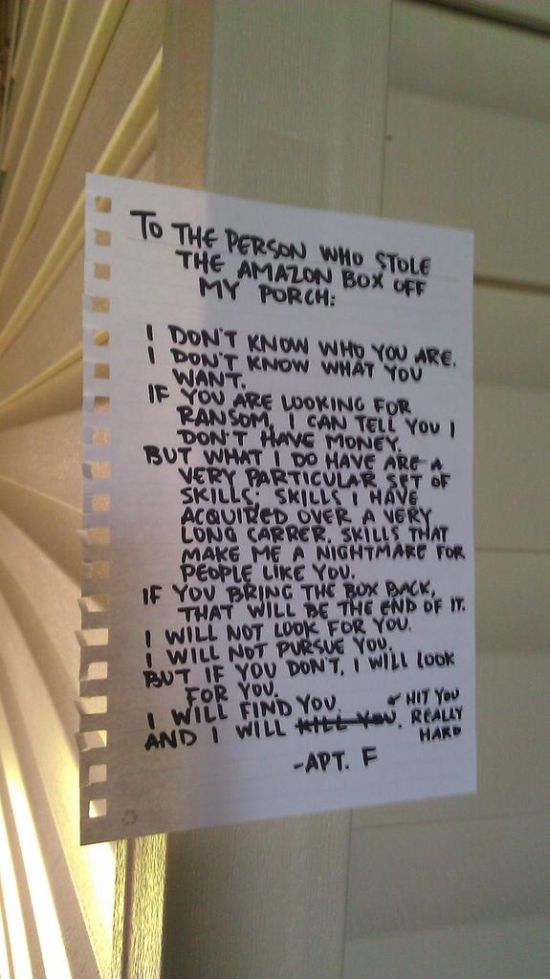 TO THE PERSON WHO STOLE
THE AMAZON BOX OFF
MY PORCH:
I DON'T KNOW WHO YOU ARE.
I DON'T KNOW WHAT YOU
WANT.
IF YOU ARE LOOKING FOR
RANSOM, I CAN TELL YOU I
DON'T HAVE MONEY.
BUT WHAT I DO HAVE ARE A
VERY PARTICULAR SET OF
SKILLS; SKILLS I HAVE
ACQUIRED OVER A VERY
LONG CARRER. SKILLS THAT
MAKE ME A NIGHTMARE FOR
PEOPLE LIKE YOU.
IF YOU BRING THE BOX BACK,
THAT WILL BE THE END OF IT.
I WILL NOT LOOK FOR YOU.
I WILL NOT PURSUE YOU.
BUT IF YOU DON'T, I WILL LOOK
FOR YOU.
I WILL FIND YOU.
AND I WILL KILL YOU.
HIT YOU
REALLY
HARD
-APT. F